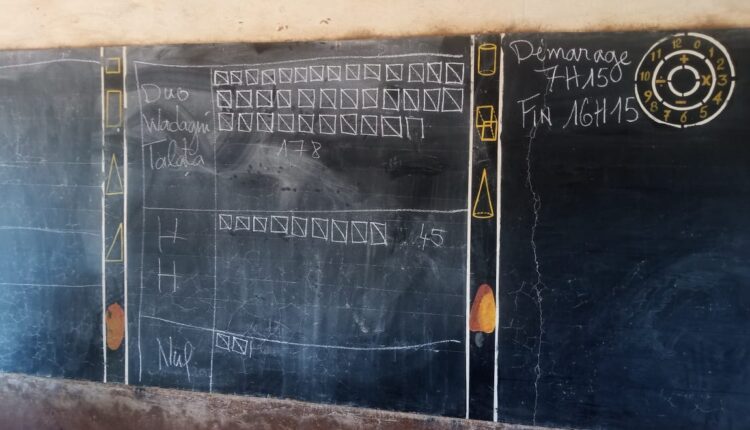 Duo
Wadagni
Talata
178
H
H
45
Nul
Démarage
7H15
Fin 16H15
12 0 1 2 3 4 5 6 7 8 9 10 11
+ × − ÷